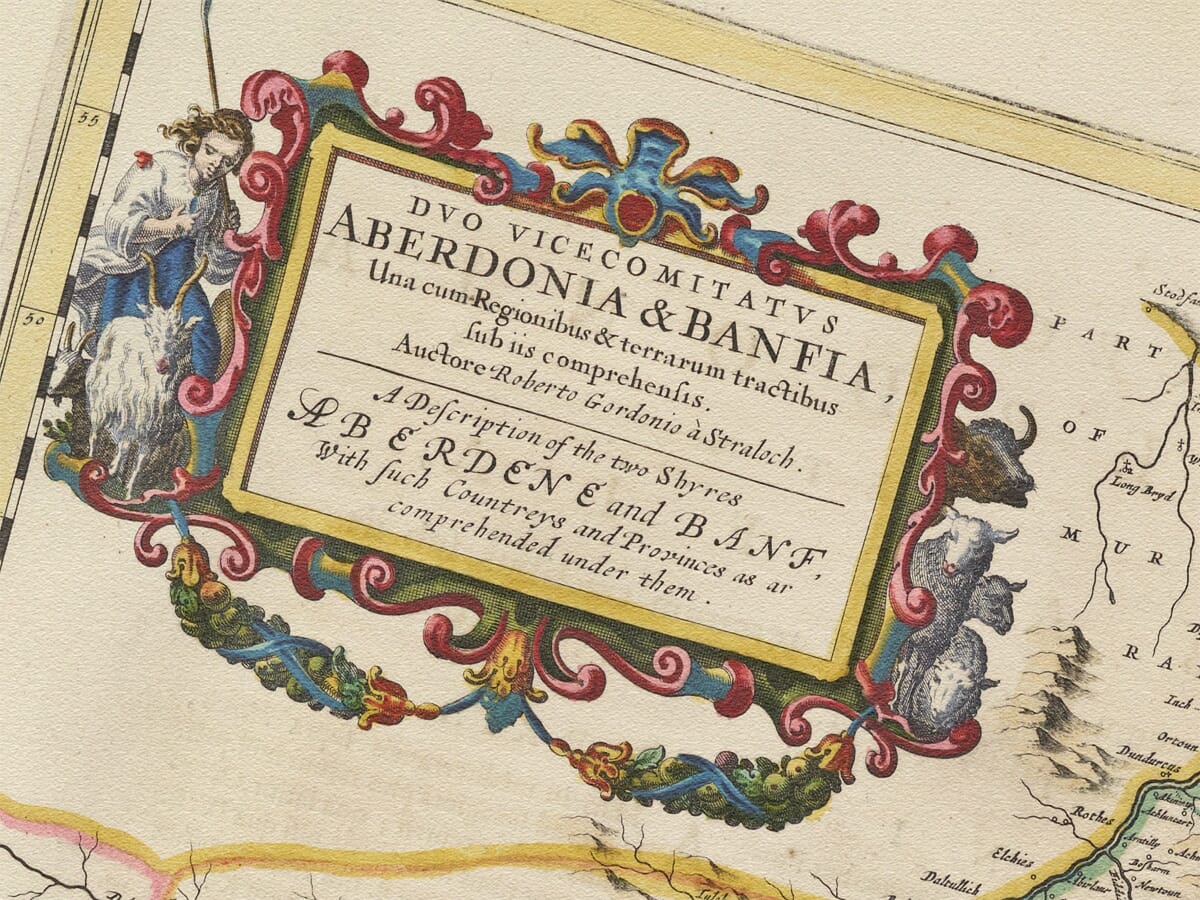 DVO VICECOMITATVS
ABERDONIA & BANFIA,
Una cum Regionibus & terrarum tractibus
ſub iis comprehenſis.
Auctore Roberto Gordonio à Straloch.
A Deſcription of the two Shyres
ABERDENE and BANF,
With ſuch Countreys and Provinces as ar
comprehended under them.
55
50
PART
OF
MUR
RA
Long Bryd
Inch
Ortoun
Dundurcus
Rothes
Elchies
Daltullich
Boharm
Newtoun